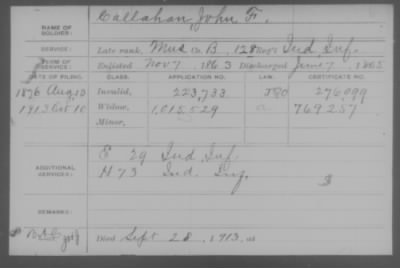 NAME OF SOLDIER: Callahan, John F.
SERVICE: Late rank, Mus Co. B, 128 Reg't Ind Inf.
TERM OF SERVICE: Enlisted Nov 7, 1863 Discharged June 7, 1865
DATE OF FILING. CLASS. APPLICATION NO. LAW. CERTIFICATE NO.
1876 Aug, 10 Invalid, 223,733 276,099
1913 Oct 10 Widow, 1,015,529 769,257
Minor,
ADDITIONAL SERVICES: E 29 Ind Inf.
H 73 Ind. Inf.
REMARKS:
Died Sept 28, 1913, at